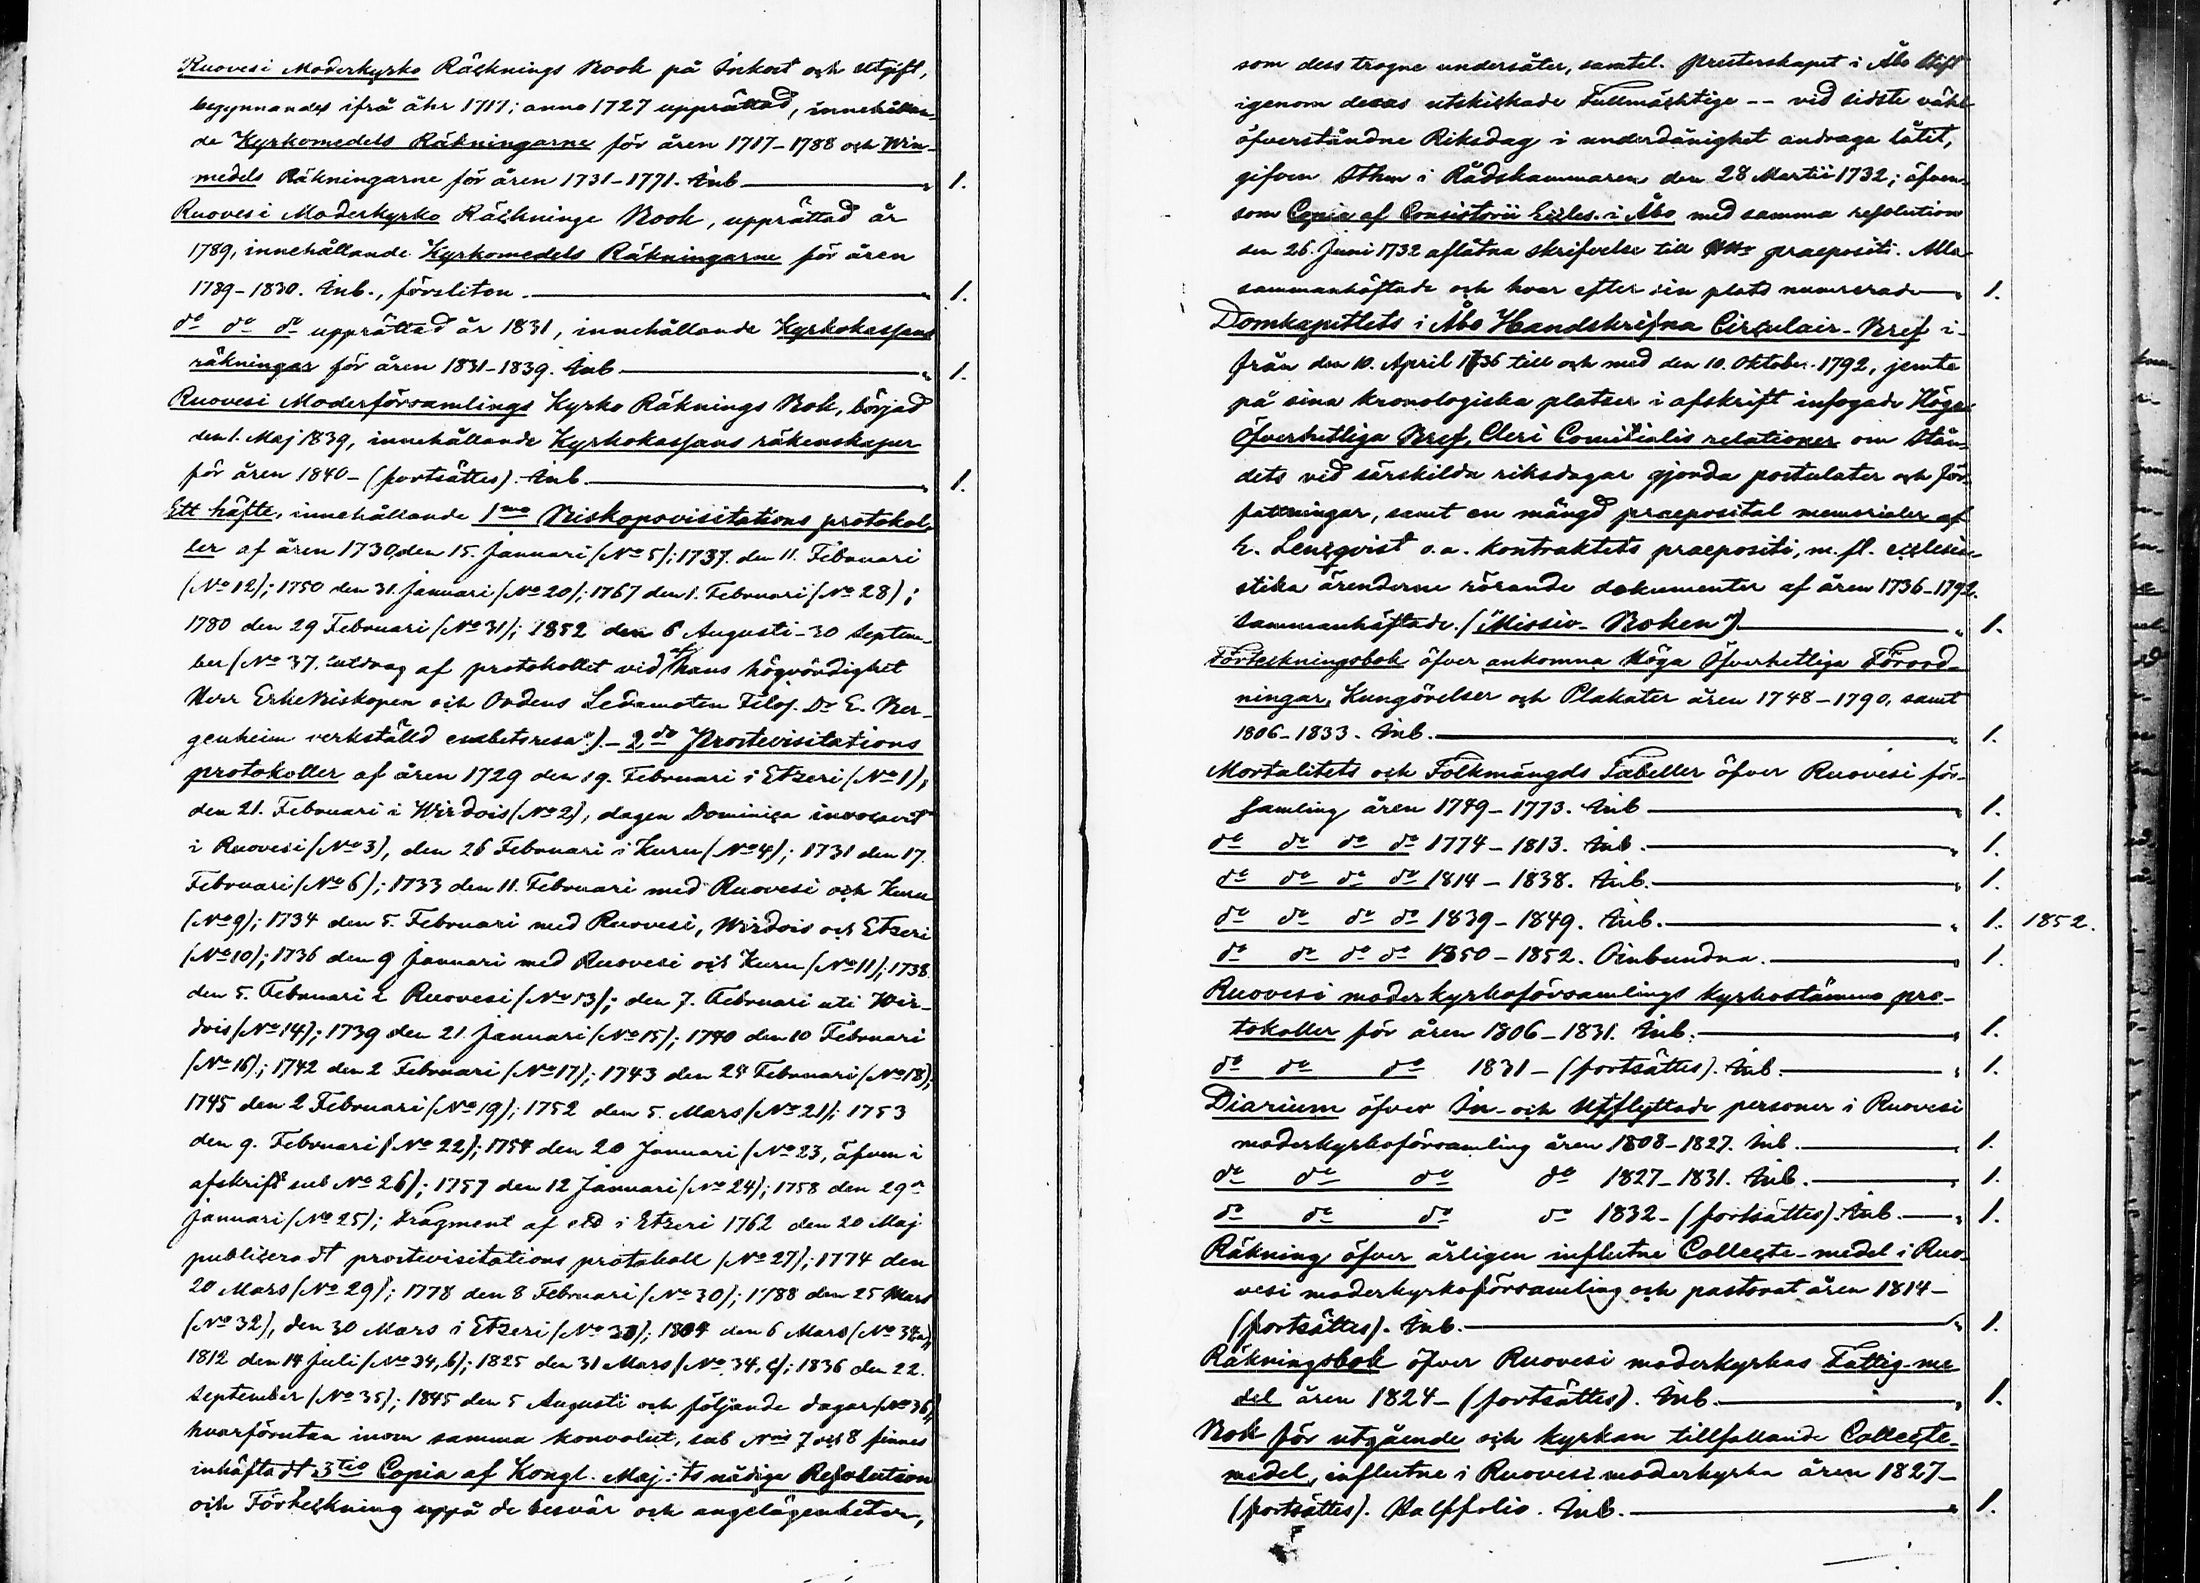 Ruovesi Moderkyrko Räcknings Book på Inkost och Utgift,
begynnandes ifrå åhr 1717; anno 1727 upprättad, innehållan-
de Kyrkomedels Räkningarne för åren 1717-1788 och Win-
medels Räkningarne för åren 1731-1771. Inb — " 1.
Ruovesi Moderkyrko Räcknings Book, upprättad år
1789, innehållande Kyrkomedels Räkningarne för åren
1789-1830. Inb., försliten. — " 1.
do do do upprättad år 1831, innehållande Kyrkokassans
räkningar för åren 1831-1839. Inb — " 1.
Ruovesi Moderförsamlings Kyrko Räknings Bok, börjad
den 1. Maj 1839, innehållande Kyrkokassans räkenskaper
för åren 1840- (fortsättes). Inb. — " 1.
Ett häfte, innehållande 1mo Biskopsvisitations protokol-
ler af åren 1730 den 15. Januari (No 5); 1737. den 11. Februari
(No 12); 1750 den 31. Januari (No 20); 1767 den 1. Februari (No 28);
1780 den 29 Februari (No 31); 1852 den 6 Augusti-30 Septem-
ber (No 37. "utdrag af protokollet vid af hans högvördighet
Herr ErkeBiskopen och Ordens Ledamoten Filos. Dr E. Ber-
genheim verkställd embetsresa"). - 2do Prostevisitations
protokoller af åren 1729 den 19. Februari i Etseri (No 1),
den 21. Februari i Wirdois (No 2), dagen Dominica invocavit
i Ruovesi (No 3), den 26 Februari i Kuru (No 4); 1731 den 17.
Februari (No 6); 1733 den 11. Februari med Ruovesi och Kuru
(No 9); 1734 den 5. Februari med Ruovesi, Wirdois och Etseri
(No 10); 1736 den 9 Januari med Ruovesi och Kuru (No 11); 1738.
den 5. Februari i Ruovesi (No 13); den 7. Februari uti Wir-
dois (No 14); 1739 den 21. Januari (No 15); 1740 den 10 Februari
(No 16); 1742 den 2 Februari (No 17); 1743 den 24 Februari (No 18);
1745 den 2 Februari (No 19); 1752 den 5. Mars (No 21); 1753
den 9. Februari (No 22); 1754 den 20 Januari (No 23, äfven i
afskrift sub No 26); 1757 den 12 Januari (No 24); 1758 den 29
Januari (No 25); Fragment af ett i Etseri 1762 den 20 Maj
publiceradt prostevisitations protokoll (No 27); 1774 den
20 Mars (No 29); 1778 den 8 Februari (No 30); 1788 den 25 Mars
(No 32), den 30 Mars i Etseri (No 33); 1804 den 6 Mars (No 34a);
1812 den 14 Juli (No 34, b); 1825 den 31 Mars (No 34, c); 1836 den 22.
September (No 35); 1845 den 5 Augusti och följande dagar (No 36),
hvarförutan inom samma konvolut, sub Nris 7 och 8 finnes
inhäftadt 3tio Copia af Kongl. Maj:ts nådige Resolution
och Förteckning uppå de besvär och angelägenheter,
som dess trogne undersåter, samtel. Presterskapet i Åbo Stift
igenom deras utskickade Fullmäcktige -- vid sidste väl
öfverståndne Riksdag i underdånighet andraga låtit,
gifven Sthm i Rådskammaren den 28 Martii 1732; äfven-
som Copia af Consistorii Eccles. i Åbo med samma resolution
den 26. Juni 1732 aflåtna skrifvelse till praepositi. Alla
sammanhäftade och hvar efter sin plats numrerade — " 1.
Domkapitlets i Åbo Handskrifna Circulair-Bref i-
från den 10. April 1736 till och med den 10. Oktober 1792, jemte
på sina kronologiska platser i afskrift infogade Höga
Öfverhetliga Bref, Cleri Comitialis relationer om Stån-
dets vid särskilda riksdagar gjorda postulater och för-
fattningar, samt en mängd praeposital memorialer af
E. Lencqvist o.a. kontraktets praepositi, m.fl. ecclesia-
stika ärenderne rörande dokumenter af åren 1736-1792.
Sammanhäftade. ("Missiv-Boken") — " 1.
Förteckningsbok öfver ankomna Höga Öfverhetliga Förord-
ningar, Kungörelser och Plakater åren 1748-1790, samt
1806-1833. Inb. — 1.
Mortalitets och Folkmängds Tabeller öfver Ruovesi för-
samling åren 1749-1773. Inb — " 1.
do do do do 1774-1813. Inb. — " 1.
do do do do 1814-1838. Inb. — " 1.
do do do do 1839-1849. Inb. — " 1. 1852.
do do do do 1850-1852. Oinbundna. — " 1.
Ruovesi moderkyrkoförsamlings kyrkostämmo pro-
tokoller för åren 1806-1831. Inb. — " 1.
do do do 1831-(fortsättes). Inb. — " 1.
Diarium öfver In- och Utflyttade personer i Ruovesi
moderkyrkoförsamling åren 1808-1827. Inb. — 1.
do do do do 1827-1831. Inb. — " 1.
do do do do 1832-(fortsättes). Inb. — " 1.
Räkning öfver årligen influtne Collecte-medel i Ruo-
vesi moderkyrkoförsamling och pastorat åren 1814-
(fortsättes). Inb. — " 1.
Räkningsbok öfver Ruovesi moderkyrkas Fattig-me-
del åren 1824-(fortsättes). Inb. — " 1.
Bok för utgående och kyrkan tillfallande Collecte-
medel, influtne i Ruovesi moderkyrka åren 1827-
(fortsättes). Halffolio. Inb. — " 1.